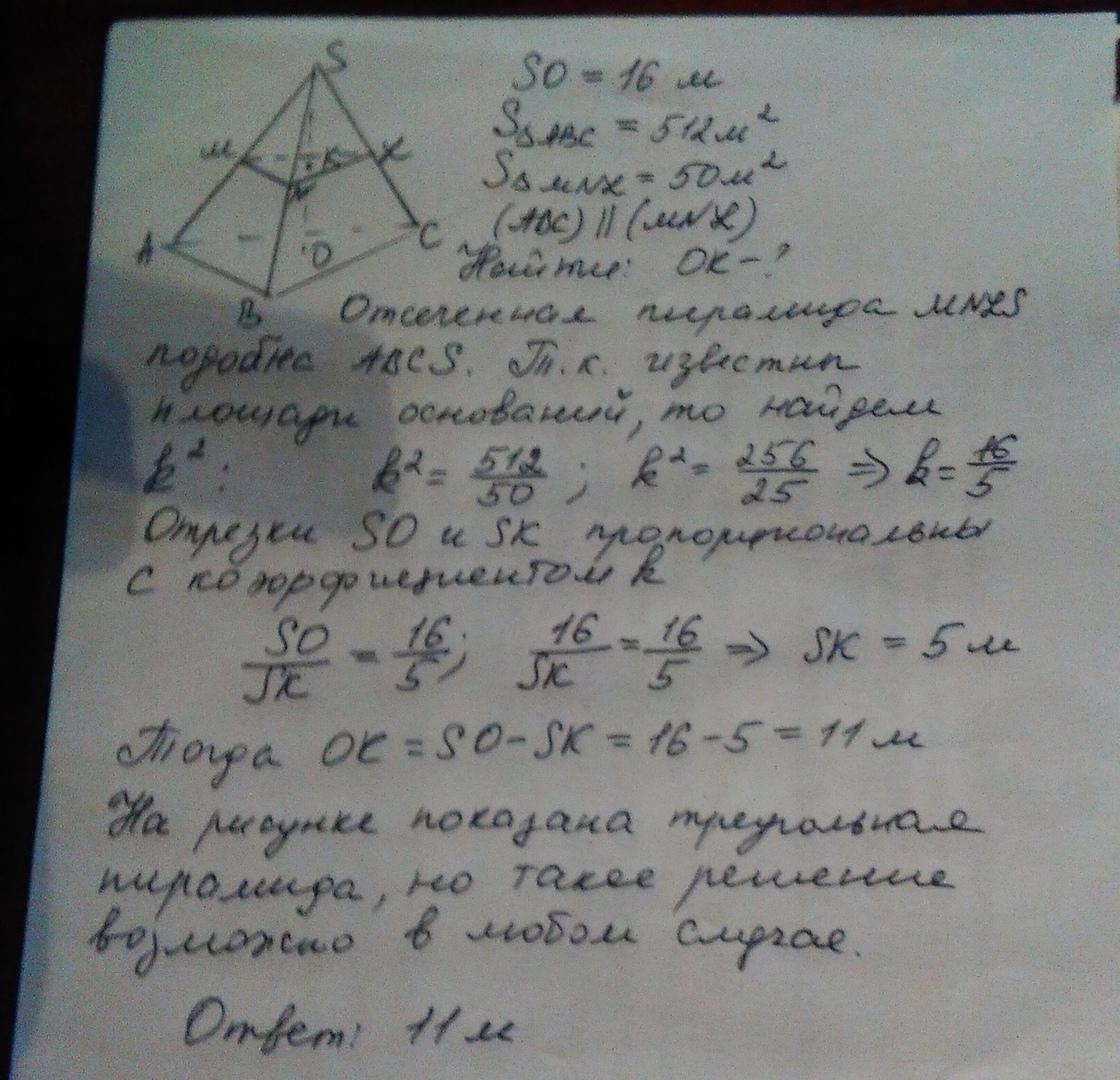 S
SO = 16 м
S△ABC = 512 м²
M K X
S△MNX = 50 м²
N
(ABC) || (MNX)
A O C
Найти: OK - ?
B
Отсеченная пирамида MNXS
подобна ABCS. Т.к. известны
площади оснований, то найдем
k²: k² = 512/50 ; k² = 256/25 ⇒ k = 16/5
Отрезки SO и SK пропорциональны
с коэффициентом k
SO/SK = 16/5; 16/SK = 16/5 ⇒ SK = 5 м
Тогда OK = SO - SK = 16 - 5 = 11 м
На рисунке показана треугольная
пирамида, но такое решение
возможно в любом случае.
Ответ: 11 м